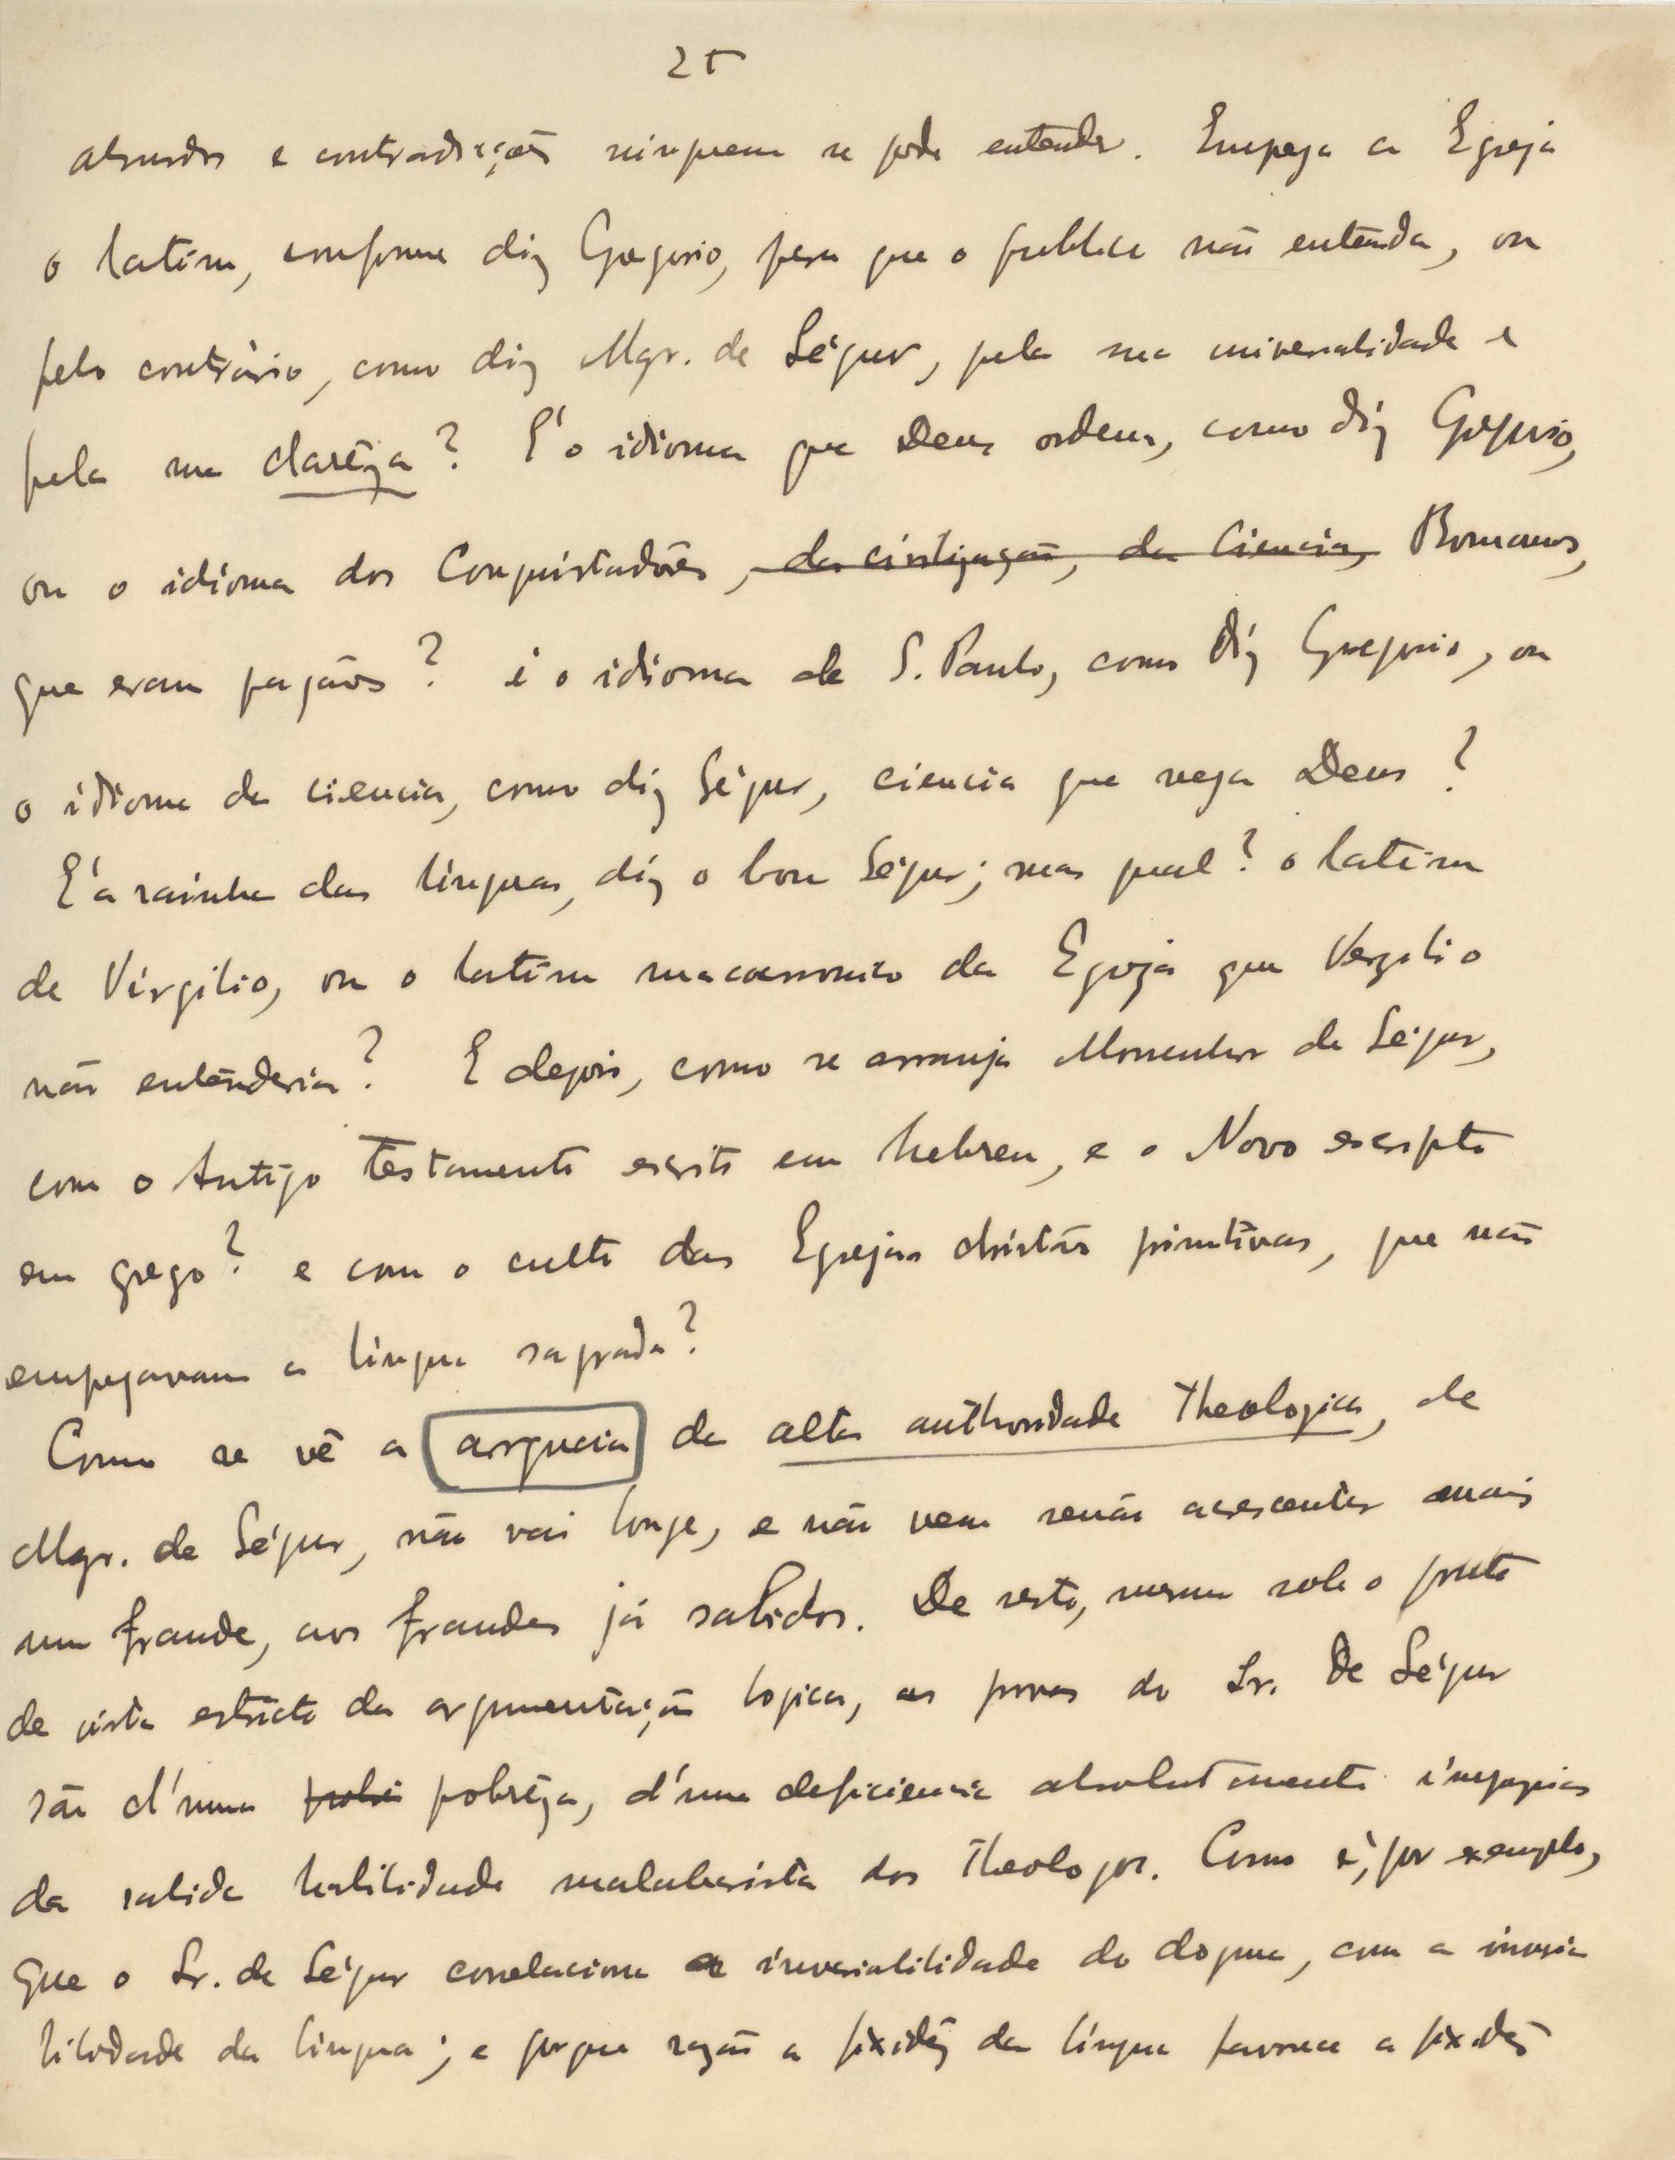 25
absurdos e contradicções ninguem se pode entender. Emprega a Egreja
o latim, conforme diz Gregorio, para que o publico não entenda, ou
pelo contrário, como diz Mgr. de Ségur, pela sua universalidade e
pela sua clarêza? É o idioma que Deus ordena, como diz Gregorio,
ou o idioma dos Conquistadôres, da civilização, da Ciencia, Romanos,
que eram pagãos? é o idioma de S. Paulo, como diz Gregorio, ou
o idioma da ciencia, como diz Ségur, ciencia que nega Deus?
É a rainha das linguas, diz o bom Ségur; mas qual? o latim
de Virgilio, ou o latim macarronico da Egreja que Vergilio
não entenderia? E depois, como se arranja Monsenhor de Ségur,
com o Antigo Testamento escrito em hebreu, e o Novo escripto
em grego? e com o culto das Egrejas christãs primitivas, que não
empregavam a lingua sagrada?
Como se vê a argucia da alta authoridade Theologica, de
Mgr. de Ségur, não vai longe, e não vem senão acrescentar mais
uma fraude, aos fraudes já sabidos. De resto, mesmo sob o ponto
de vista estricto da argumentação logica, as provas do Sr. De Ségur
são d'uma pobre pobrêza, d'uma deficiencia absolutamente improprias
da sabida habilidade malabarista dos Theologos. Como é, por exemplo,
que o Sr. de Ségur correlaciona a invariabilidade do dogma, com a invaria
bilidade da lingua; e porque razão a fixidêz da lingua favorece a fixidêz